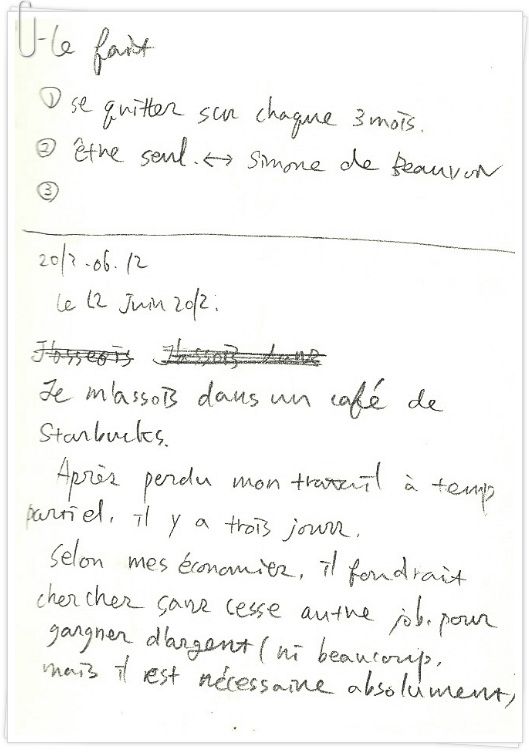 -le fait
① se quitter sur chaque 3 mois.
② être seul. ↔ Simone de Beauvoir
③
2012.06.12
Le 12 Juin 2012.
Je m'assois dans un café de
Starbucks.
Après perdu mon travail à temp
partiel, il y a trois jours.
Selon mes économies, il foudrait
chercher sans cesse autre job. pour
gargner d'argent (ni beaucoup,
mais il est nécessaire absolument,